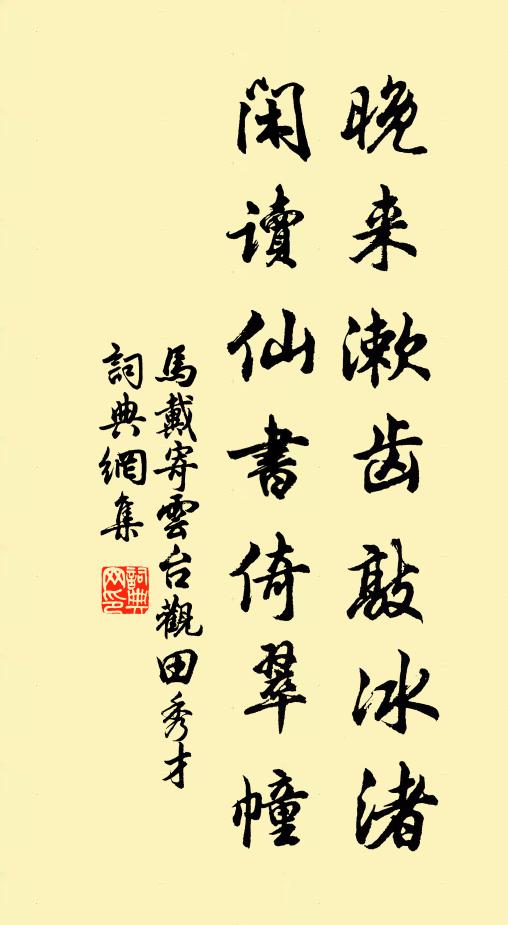 晚来漱齿敲冰渚
闲读仙書倚翠幢
馬戴寄雲台觀田秀才
詞典網集
詞典網印